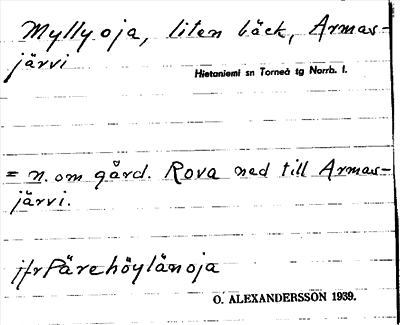 Myllyoja, liten bäck, Armas-
järvi
Hietaniemi sn Torneå tg Norrb. l.
= n. om gård. Rova ned till Armas-
järvi.
jfr Pärehöylänoja
O. ALEXANDERSSON 1939.